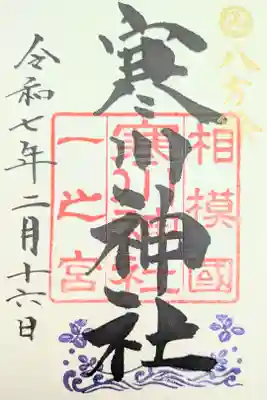 八方除
寒川神社
相模國
寒川神社
一之宮
令和七年二月十六日